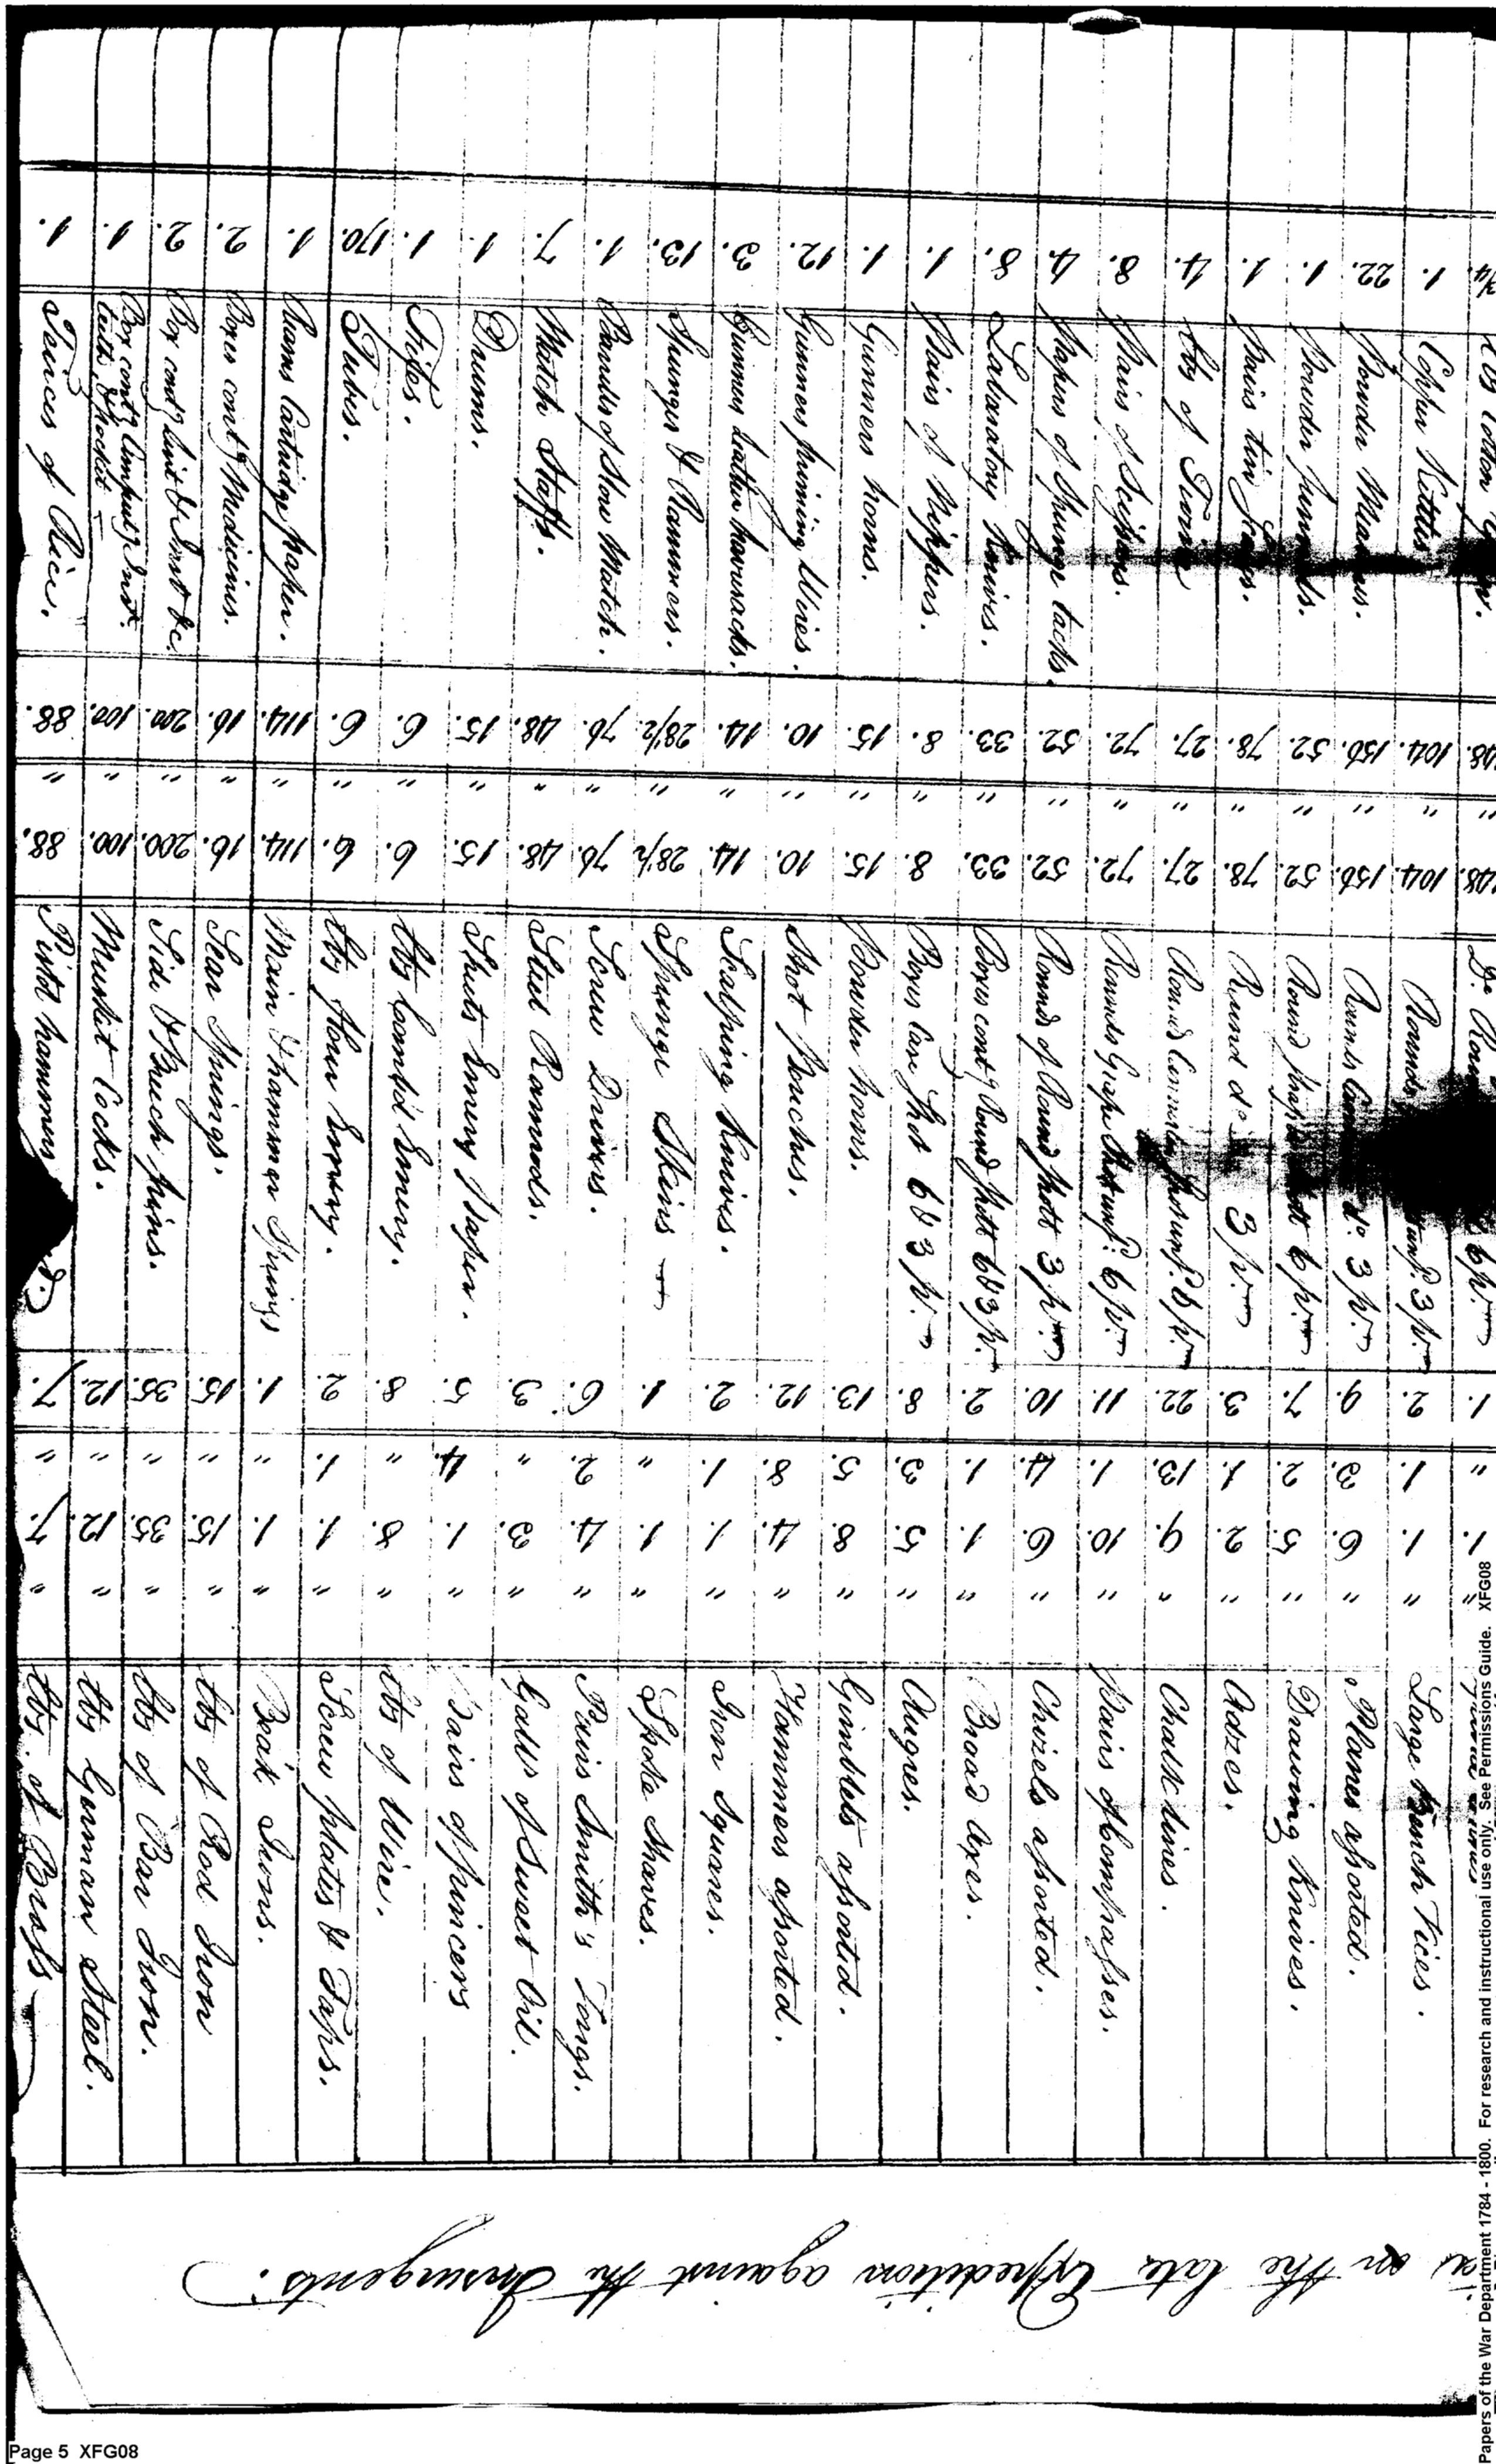 ies on the late Expedition against the Insurgents.
Large Bench Vices.
Planes assorted.
Drawing Knives.
Adzes.
Chalk lines.
Pairs of Compasses.
Chizels assorted.
Broad axes.
Augres.
Gimblets assorted.
Hammers assorted.
Iron Squares.
Spoke Shaves.
Pairs Smith's Tongs.
Galls of Sweet Oil.
Pairs of pincers
lbs of Wire.
Screw plates & Taps.
Beak Irons.
lbs of Rod Iron
lbs of Bar Iron.
lbs German Steel.
lbs. of Brass
" " " " " " " " " " " " " " " " " " " " " " " "
1. 1. 6. 5. 2. 9. 10. 6. 1. 5. 8. 4. 1. 1. 4. 3. 1. 8. 1. 1. 15. 35. 12. 7.
" 1. 3. 2. 1. 13. 1. 4. 1. 3. 5. 8. 1. " 2. " 4. " 1. " " " " "
1. 2. 9. 7. 3. 22. 11. 10. 2. 8. 13. 12. 2. 1. 6. 3. 5. 8. 2. 1. 15. 35. 12. 7.
Do. 6 pr.
Rounds 3 pr.
Rounds do. 3 pr.
Round 6 pr.
Round do 3 pr.
Rounds 6 pr.
Rounds Grape 6 pr.
Rounds of Round shott 3 pr.
Boxes contg Round shott 6 & 3 pr.
Boxes Case Shot 6 & 3 pr.
Powder horns.
Shot Pouches.
Scalping Knives.
Spunge Skins
Screw Drivers.
Steel Ramrods.
Sheets Emery Paper.
lbs Emery.
lbs flour Emery.
Main & hammer Springs
Sear Springs.
Side & Breech pins.
Muskit Cocks.
Pistol hammers
48. 104. 156. 52. 78. 27. 72. 52. 33. 8. 15. 10. 14. 28½ 76. 48. 15. 6. 6. 114. 16. 200. 100. 88.
" " " " " " " " " " " " " " " " " " " " " " " "
48. 104. 156. 52. 78. 27. 72. 52. 33. 8. 15. 10. 14. 28½ 76. 48. 15. 6. 6. 114. 16. 200. 100. 88.
lbs Cotton
Copper Kettles
Powder Measures.
Powder funnels.
Pairs tin
lbs of Twine
Pairs of Scissars.
Papers of Spunge tacks.
Labaratory Knives.
Pairs of Nippers.
Gunners horns.
Gunners priming Wires.
Gunners leather haversacks.
Spunges & Rammers.
Bands of Slow Match.
Match Staffs.
Drums.
Fifes.
Tubes.
Reams Cartridge paper.
Boxes contg Medicines.
Box contg lint & Inst &c.
Box contg Amputg Inst.
Teirces of Rice.
¾ 1. 22. 1. 1. 4. 8. 4. 8. 1. 1. 12. 3. 13. 1. 7. 1. 1. 170. 1. 2. 2. 1. 1.
Papers of the War Department 1784 - 1800. For research and instructional use only. See Permissions Guide. XFG08
Page 5 XFG08